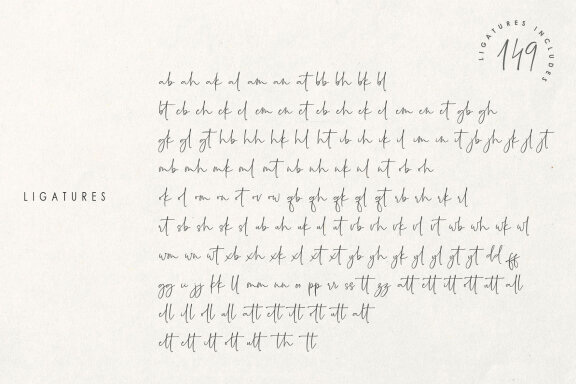 LIGATURES INCLUDES
149
ab ah ak al am an at bb bh bk bl
bt cb ch ck cl cm cn ct eb eh ek el em en et gb gh
gk gl gt hb hh hk hl ht ib ih ik il im in it jb jh jk jl jt
mb mh mk ml mt nb nh nk nl nt ob oh
LIGATURES
ok ol om on ot ov ow qb qh qk ql qt rb rh rk rl
rt sb sh sk sl ub uh uk ul ut vb vh vk vl vt wb wh wk wl
wm wn wt xb xh xk xl xt yb yh yk yl yt dd ff
gg ii jj kk ll mm nn oo pp rr ss tt zz att ett itt ott utt all
ell ill oll ull att ett itt ott utt alt
elt ett ilt olt ult th tt